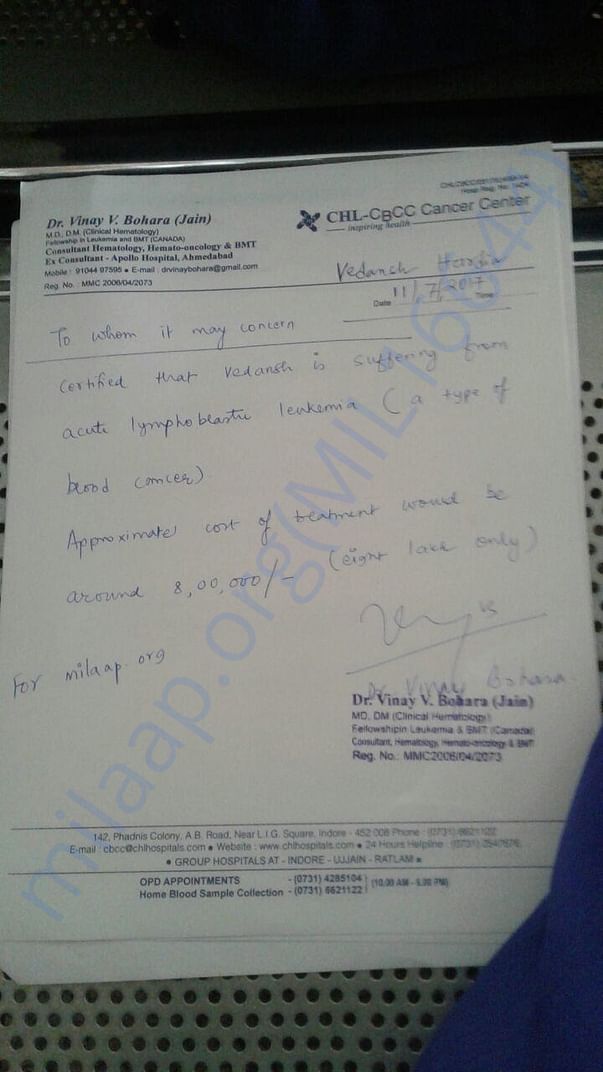 Dr. Vinay V. Bohara (Jain)
M.D., D.M. (Clinical Hematology)
Fellowship in Leukemia and BMT (CANADA)
Consultant Hematology, Hemato-oncology & BMT
Ex Consultant - Apollo Hospital, Ahmedabad
Mobile : 91044 97595 • E-mail : drvinaybohara@gmail.com
Reg. No. : MMC 2006/04/2073
CHL-CBCC Cancer Center
inspiring health
Vedansh
Date 11/7/2017 Time
To whom it may concern
Certified that Vedansh is suffering from
acute lymphoblastic leukemia (a type of
blood cancer)
Approximate cost of treatment would be
around 8,00,000/- (eight lakh only)
For milaap.org
Dr. Vinay Bohara.
Dr. Vinay V. Bohara (Jain)
MD, DM (Clinical Hematology)
Fellowshipin Leukemia & BMT (Canada)
Consultant, Hematology, Hemato-oncology & BMT
Reg. No.: MMC2006/04/2073
142, Phadnis Colony, A.B. Road, Near L.I.G. Square, Indore - 452 008 Phone : (0731) 6621122
E-mail : cbcc@chlhospitals.com • Website : www.chlhospitals.com • 24 Hours Helpline :
• GROUP HOSPITALS AT - INDORE - UJJAIN - RATLAM •
OPD APPOINTMENTS - (0731) 4285104 (10.00 AM - 5.00 PM)
Home Blood Sample Collection - (0731) 6621122
milaap.org(MIL16644)